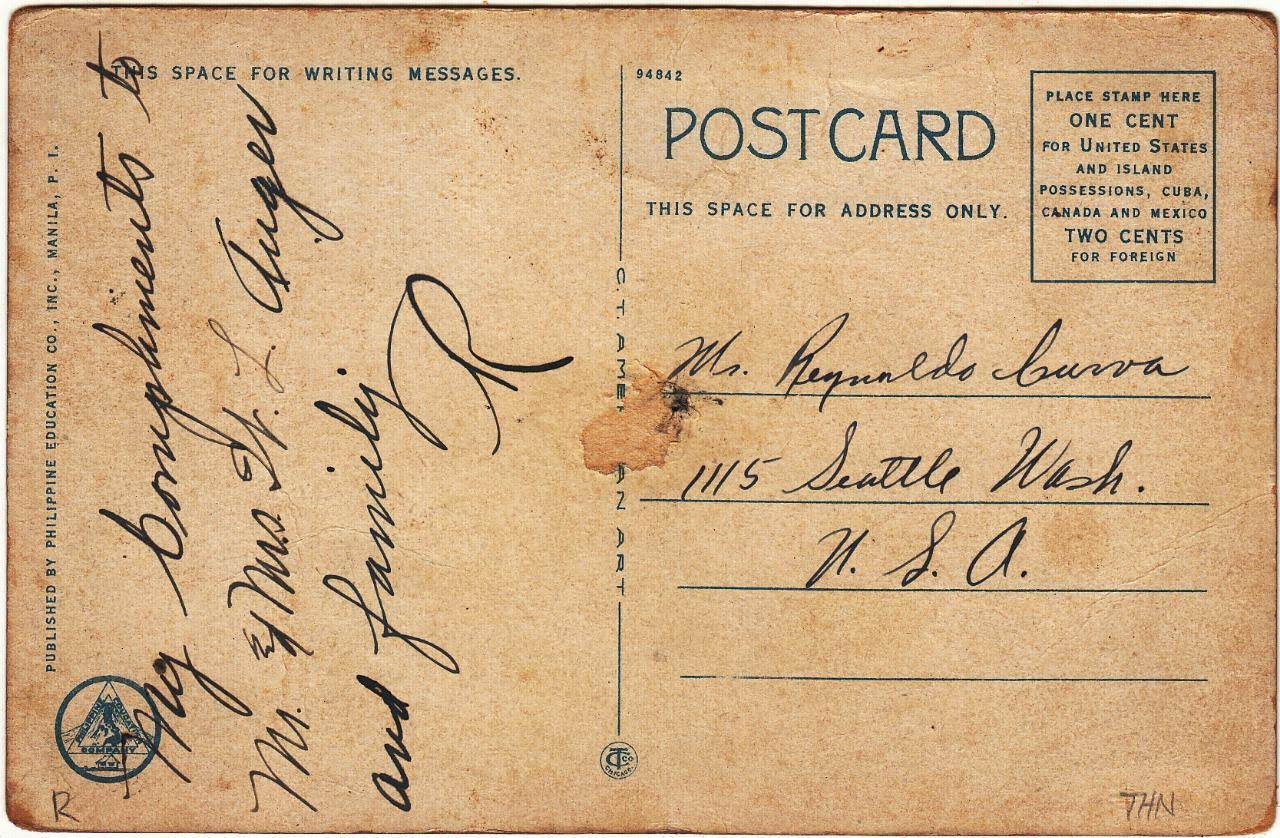 THIS SPACE FOR WRITING MESSAGES.
My Compliments to
Mr. & Mrs. H. L. Auger
and family.
R
PUBLISHED BY PHILIPPINE EDUCATION CO., INC., MANILA, P. I.
PHILIPPINE EDUCATION
COMPANY
R
94842
POST CARD
THIS SPACE FOR ADDRESS ONLY.
PLACE STAMP HERE
ONE CENT
FOR UNITED STATES
AND ISLAND
POSSESSIONS, CUBA,
CANADA AND MEXICO
TWO CENTS
FOR FOREIGN
C.T. AMER AN ART
Mr. Reynaldo
1115 Seattle Wash.
U. S. A.
CT CO
CHICAGO
THN